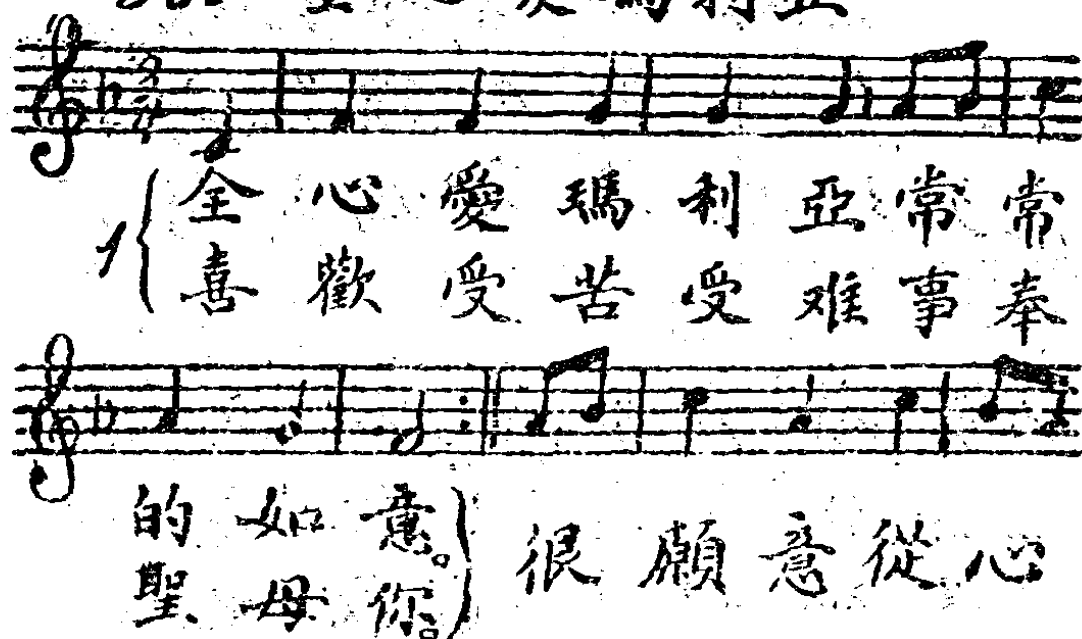 瑪利亞
3/4
全心愛瑪利亞常常
1
喜歡受苦受难事奉
的如意。
聖母你。
很願意從心